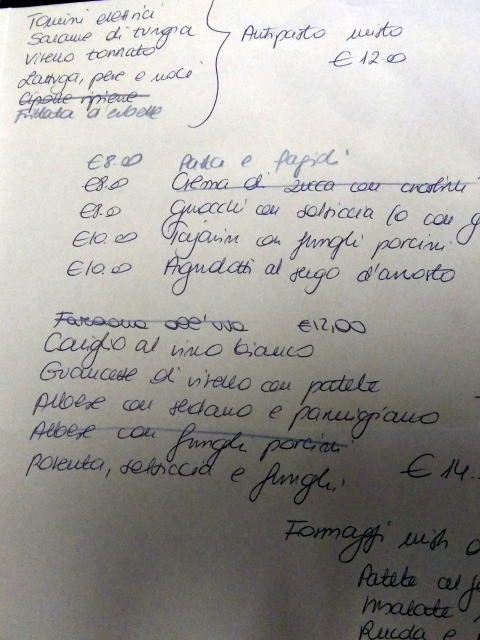 Tomini elettrici
Salame di turgia
Vitello tonnato
Lattuga, pere e noci
Cipolle ripiene
Frittata d'erbette
Antipasto misto
€ 12.00
€8.00 Pasta e fagioli
€8.0 Crema di zucca con crostini
€8.0 gnocchi con salsiccia (o con g
€10.00 Tajarin con funghi porcini
€10.00 Agnolotti al sugo d'arrosto
Faraona all'uva €12,00
Coniglio al vino bianco
Guancette di vitello con patate
Albese con sedano e parmigiano
Albese con funghi porcini
Polenta, salsiccia e funghi
€ 14.
Formaggi misti
Patate al
Insalate
Rucola e